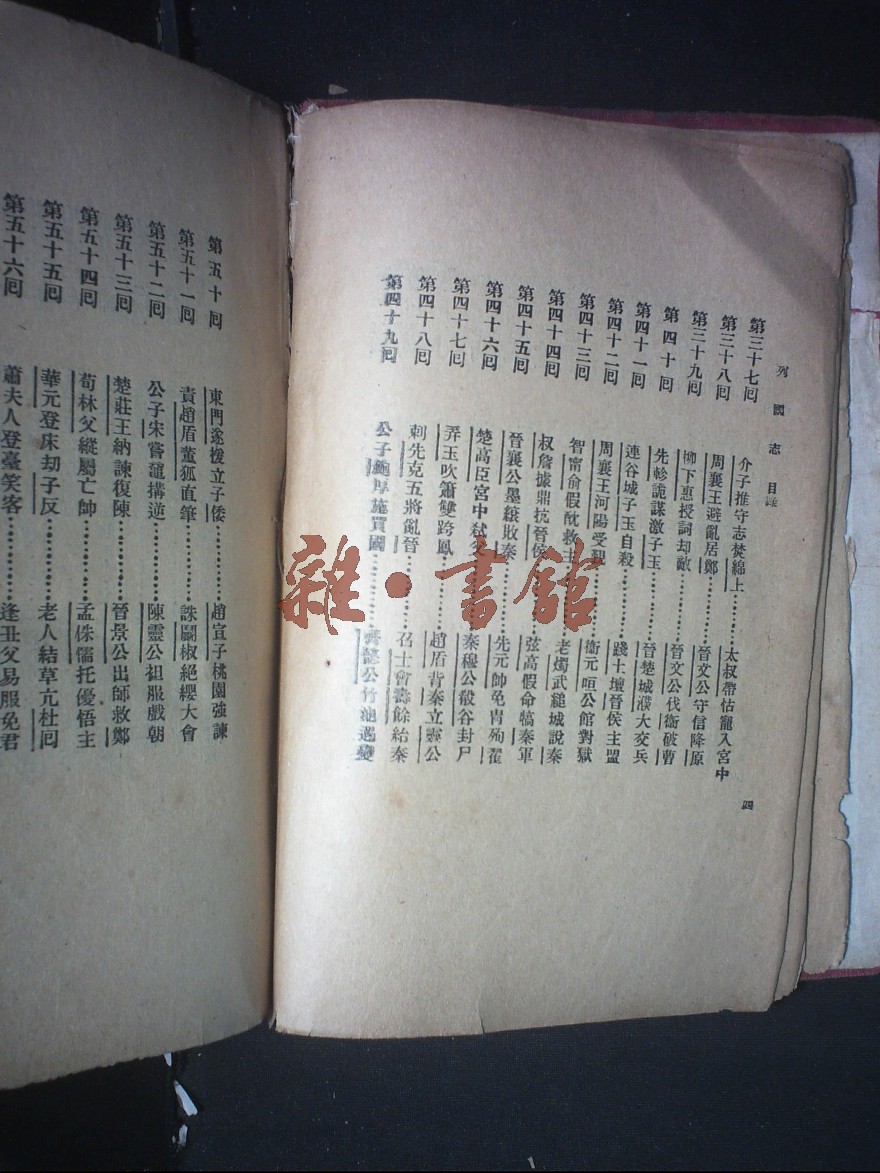 列國志 目錄
第三十七囘 介子推守志焚綿上………太叔帶怙寵入宮中
第三十八囘 周襄王避亂居鄭………晉文公守信降原
第三十九囘 柳下惠授詞却敵………晉文公伐衞破曹
第四十囘 先軫詭謀激子玉………晉楚城濮大交兵
第四十一囘 連谷城子玉自殺………踐土壇晉侯主盟
第四十二囘 周襄王河陽受覲………衞元咺公館對獄
第四十三囘 智甯俞假酖救主………老燭武縋城說秦
第四十四囘 叔詹據鼎抗晉侯………弦高假命犒秦軍
第四十五囘 晉襄公墨縗敗秦………先元帥免冑殉翟
第四十六囘 楚商臣宮中弒父………秦穆公殽谷封尸
第四十七囘 弄玉吹簫雙跨鳳………趙盾背秦立靈公
第四十八囘 刺先克五將亂晉………召士會壽餘紿秦
第四十九囘 公子鮑厚施買國………齊懿公竹池遇變
四
第五十囘 東門遂援立子倭………趙宣子桃園強諫
第五十一囘 責趙盾董狐直筆………誅鬭椒絕纓大會
第五十二囘 公子宋嘗黿搆逆………陳靈公衵服戲朝
第五十三囘 楚莊王納諫復陳………晉景公出師救鄭
第五十四囘 荀林父縱屬亡師………孟侏儒托優悟主
第五十五囘 華元登床劫子反………老人結草亢杜囘
第五十六囘 蕭夫人登臺笑客………逢丑父易服免君
雜·書館